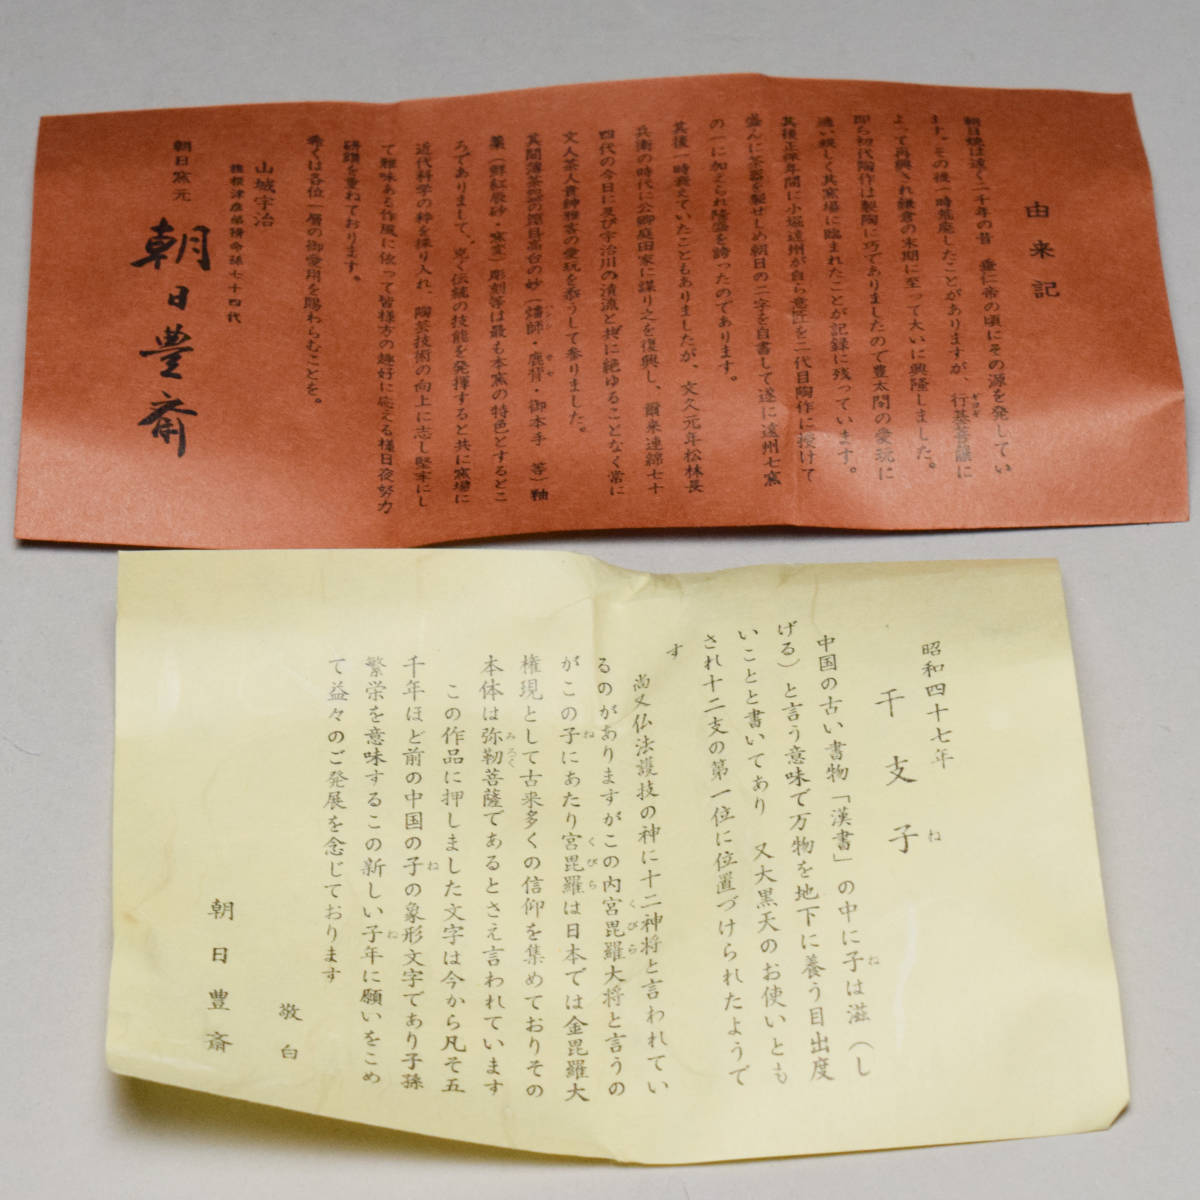 由来記
朝日焼は遠く二千年の昔　垂仁帝の頃にその源を発してい
ます。その後一時荒廃したことがありますが、行基菩薩に
よって再興され鎌倉の末期に至って大いに興隆しました。
即ち初代陶作は製陶に巧でありましたので豊太閤の愛玩に
遇い親しく其窯場に臨まれたことが記録に残っています。
其後正保年間に小堀遠州が自ら意匠を二代目陶作に授けて
盛んに茶器を製せしめ朝日の二字を自書して遂に遠州七窯
の一に加えられ隆盛を誇ったのであります。
其後一時衰えていたこともありましたが、文久元年松林長
兵衛の時代に公卿庭田家に謀り之を復興し、爾来連綿七十
四代の今日に及び宇治川の清流と共に絶ゆることなく常に
文人茶人貴紳雅客の愛玩を恭うして参りました。
其間薄茶器の面目高台の妙（燔師・鹿背・御本手　等）釉
薬（鮮紅辰砂・窯変）彫刻等は最も本窯の特色とするとこ
ろでありまして、克く伝統の技能を発揮すると共に窯場に
近代科学の粋を採り入れ、陶芸技術の向上に志し堅牢にし
て雅味ある作風に依って皆様方の趣好に応える様日夜努力
研鑽を重ねております。
希くは各位一層の御愛用を賜わらむことを。
山城宇治
七十四代
朝日窯元　朝日豊斎
昭和四十七年
干支子
ね
中国の古い書物「漢書」の中に子ねは滋（し
げる）と言う意味で万物を地下に養う目出度
いことと書いてあり　又大黒天のお使いとも
され十二支の第一位に位置づけられたようで
す
尚又仏法護技の神に十二神将と言われてい
るのがありますがこの内宮毘羅くびら大将と言うの
がこの子ねにあたり宮毘羅くびらは日本では金毘羅大
権現として古来多くの信仰を集めておりその
本体は弥勒みろく菩薩であるとさえ言われています
この作品に押しました文字は今から凡そ五
千年ほど前の中国の子ねの象形文字であり子孫
繁栄を意味するこの新しい子ね年に願いをこめ
て益々のご発展を念じております
敬白
朝日豊斎